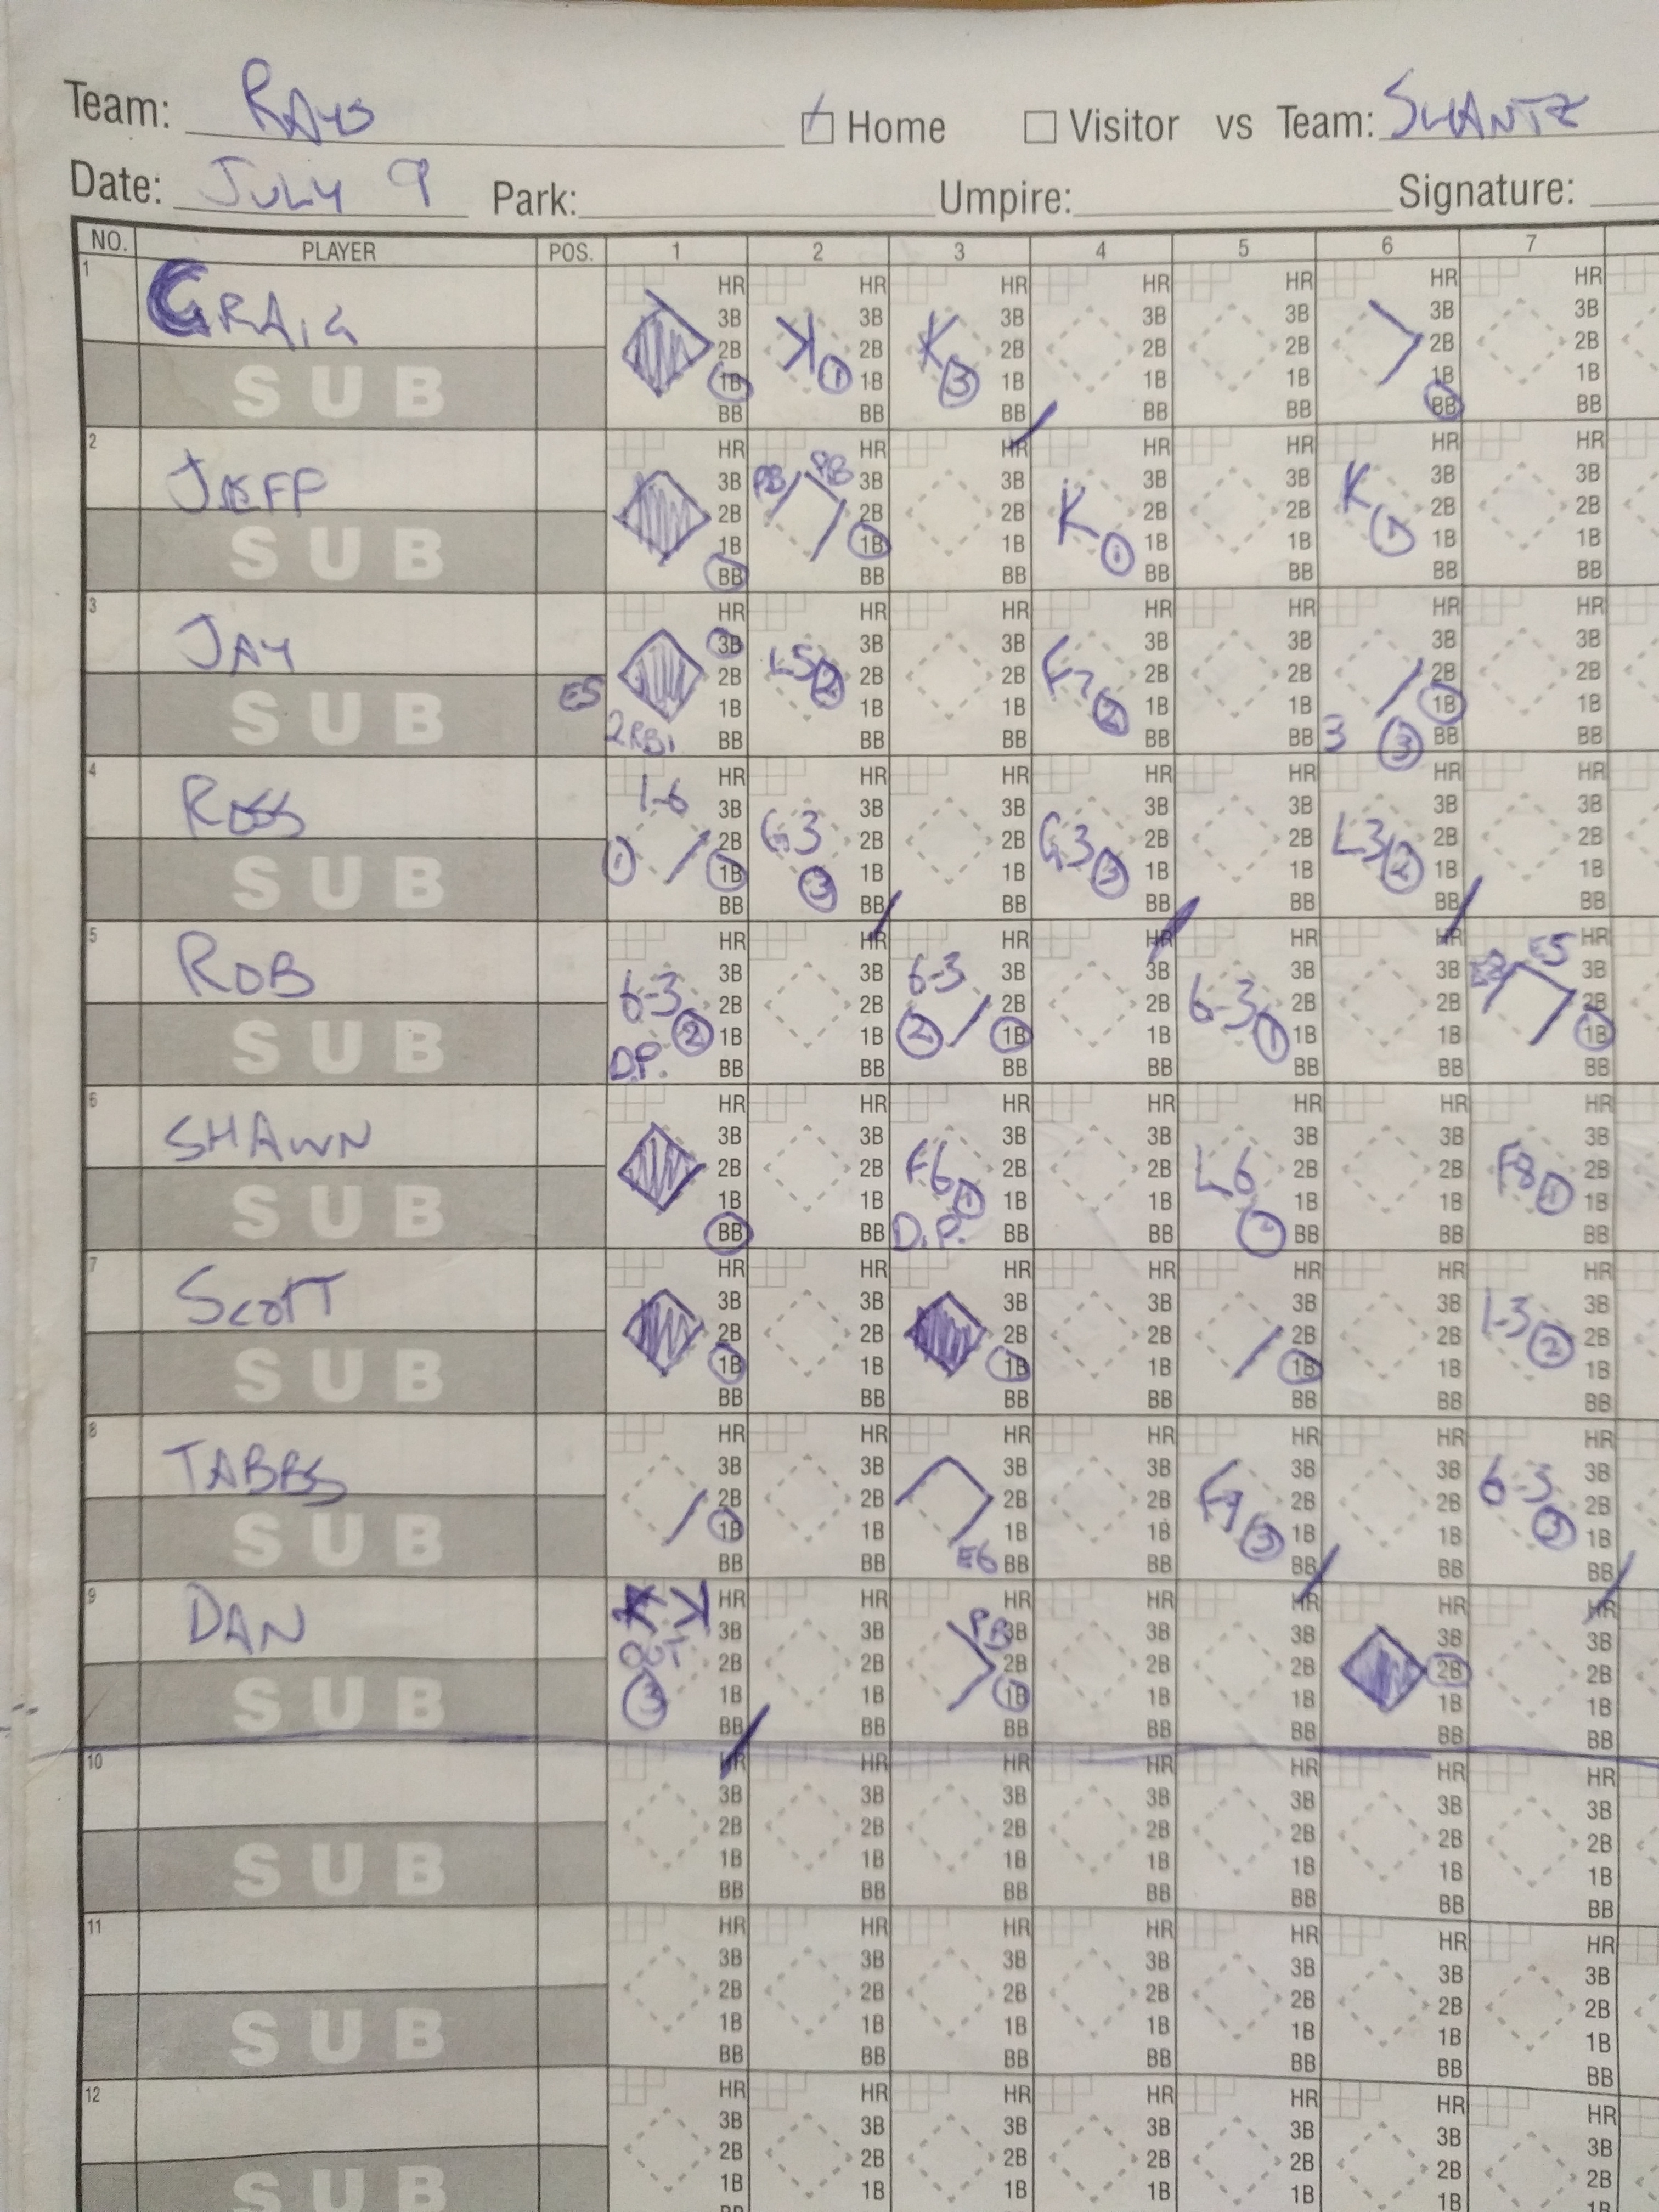 Team: RAYS Home Visitor vs Team: SHANTZ
Date: JULY 9 Park: Umpire: Signature:
NO. PLAYER POS. 1 2 3 4 5 6 7
1 CRAIG
HR HR HR HR HR HR HR
3B 3B 3B 3B 3B 3B 3B
K K
2B 2B 2B 2B 2B 2B 2B
SUB 1B 1 1B 3 1B 1B 1B 1B 1B
BB BB BB BB BB BB BB
2 JEFF
HR HR HR HR HR HR HR
3B PB PB 3B 3B 3B 3B K 3B 3B
2B 2B 2B K 2B 2B 2B 2B
SUB 1B 1B 1B 1 1B 1B 1 1B 1B
BB BB BB BB BB BB BB
3 JAY
HR HR HR HR HR HR HR
3B 3B 3B 3B 3B 3B 3B
2B L5 2 2B 2B F7 2B 2B 2B 2B
SUB E5 1B 1B 1B 2 1B 1B 1B 1B
2RBI BB BB BB BB BB 3 3 BB BB
4 ROSS
HR HR HR HR HR HR HR
1-6 3B 3B 3B 3B 3B 3B 3B
2B G3 2B 2B G3 2B 2B L3 2B 2B
SUB 1 1B 3 1B 1B 3 1B 1B 2 1B 1B
BB BB BB BB BB BB BB
5 ROB
HR HR HR HR HR E5 HR
3B 3B 6-3 3B 3B 3B 3B 3B
6-3 2B 2B 2B 2B 6-3 2B 2B 2B
SUB 2 1B 1B 2 1B 1B 1 1B 1B 1B
D.P. BB BB BB BB BB BB BB
6 SHAWN
HR HR HR HR HR HR HR
3B 3B 3B 3B 3B 3B 3B
2B 2B F6 2B 2B L6 2B 2B F8 2B
SUB 1B 1B 1 1B 1B 1B 1B 1 1B
BB BB D.P. BB BB BB BB BB
7 SCOTT
HR HR HR HR HR HR HR
3B 3B 3B 3B 3B 3B 1-3 3B
2B 2B 2B 2B 2B 2B 2 2B
SUB 1B 1B 1B 1B 1B 1B 1B
BB BB BB BB BB BB BB
8 TABBS
HR HR HR HR HR HR HR
3B 3B 3B 3B 3B 3B 6-3 3B
2B 2B 2B 2B 2B 2B 2B
SUB 1B 1B 1B 1B 3 1B 1B 3 1B
BB BB E6 BB BB BB BB BB
9 DAN
K HR HR HR HR HR HR HR
OUT 3B 3B PB 3B 3B 3B 3B 3B
2B 2B 2B 2B 2B 2B 2B
SUB 3 1B 1B 1B 1B 1B 1B 1B
BB BB BB BB BB BB BB
10
HR HR HR HR HR HR HR
3B 3B 3B 3B 3B 3B 3B
2B 2B 2B 2B 2B 2B 2B
SUB 1B 1B 1B 1B 1B 1B 1B
BB BB BB BB BB BB BB
11
HR HR HR HR HR HR HR
3B 3B 3B 3B 3B 3B 3B
2B 2B 2B 2B 2B 2B 2B
SUB 1B 1B 1B 1B 1B 1B 1B
BB BB BB BB BB BB BB
12
HR HR HR HR HR HR HR
3B 3B 3B 3B 3B 3B 3B
2B 2B 2B 2B 2B 2B 2B
SUB 1B 1B 1B 1B 1B 1B 1B